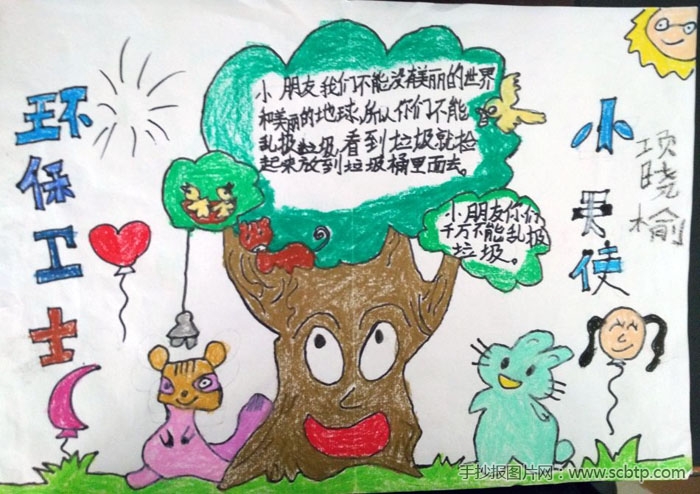 环保卫士
小朋友我们不能没有美丽的世界
和美丽的地球,所以你们不能
乱扔垃圾,看到垃圾就捡
起来放到垃圾桶里面去。
小朋友你们
千万不能乱扔
垃圾。
小天使
项晓榆
手抄报图片网:www.scbtp.com